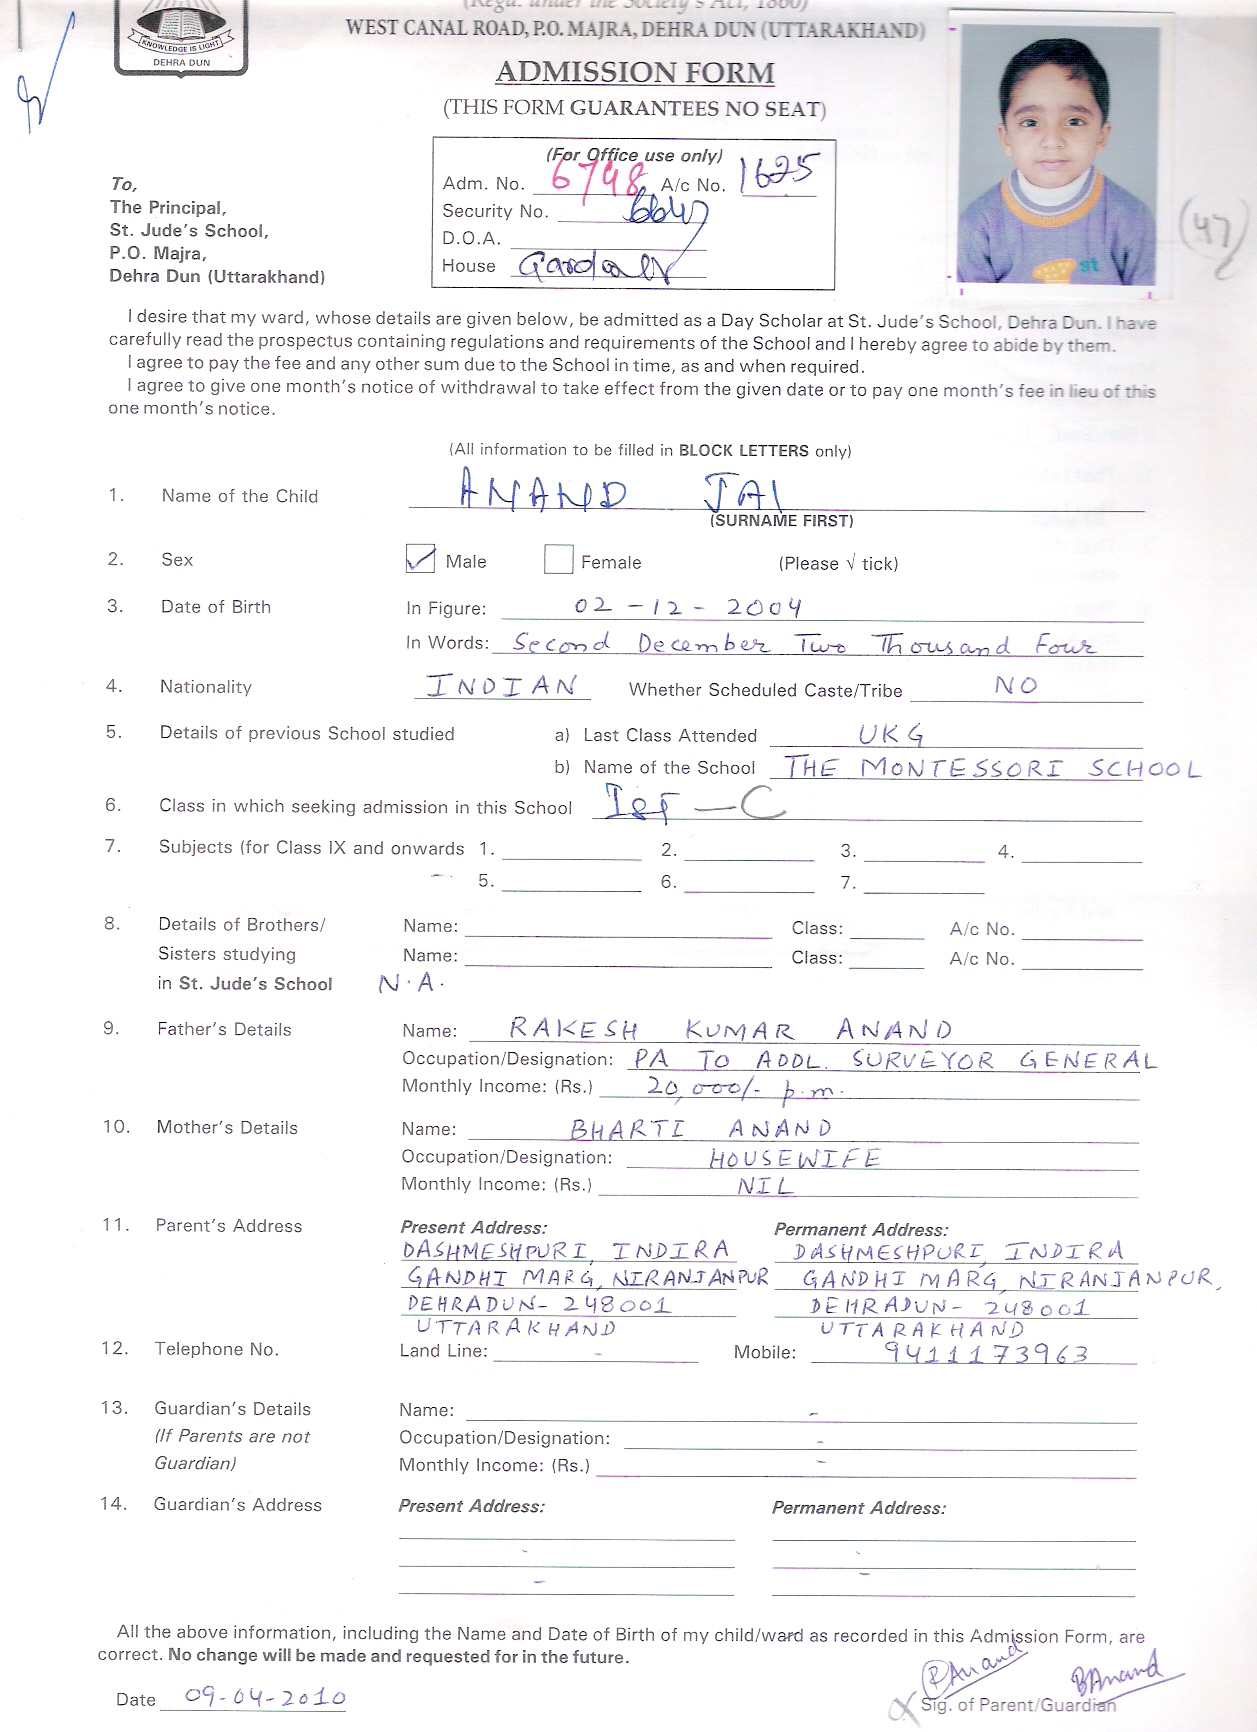 (Regd. under the Society's Act, 1860)
WEST CANAL ROAD, P.O. MAJRA, DEHRA DUN (UTTARAKHAND)
KNOWLEDGE IS LIGHT
DEHRA DUN
ADMISSION FORM
(THIS FORM GUARANTEES NO SEAT)
(For Office use only)
Adm. No. 6798 A/c No. 1625
Security No.
D.O.A.
House
(47)
To,
The Principal,
St. Jude's School,
P.O. Majra,
Dehra Dun (Uttarakhand)
1st
I desire that my ward, whose details are given below, be admitted as a Day Scholar at St. Jude's School, Dehra Dun. I have
carefully read the prospectus containing regulations and requirements of the School and I hereby agree to abide by them.
I agree to pay the fee and any other sum due to the School in time, as and when required.
I agree to give one month's notice of withdrawal to take effect from the given date or to pay one month's fee in lieu of this
one month's notice.
(All information to be filled in BLOCK LETTERS only)
1. Name of the Child ANAND JAI
(SURNAME FIRST)
2. Sex Male Female (Please √ tick)
3. Date of Birth In Figure: 02-12-2004
In Words: Second December Two Thousand Four
4. Nationality INDIAN Whether Scheduled Caste/Tribe NO
5. Details of previous School studied a) Last Class Attended UKG
b) Name of the School THE MONTESSORI SCHOOL
6. Class in which seeking admission in this School Ist - C
7. Subjects (for Class IX and onwards 1. 2. 3. 4.
5. 6. 7.
8. Details of Brothers/ Name: Class: A/c No.
Sisters studying Name: Class: A/c No.
in St. Jude's School N.A.
9. Father's Details Name: RAKESH KUMAR ANAND
Occupation/Designation: PA TO ADDL. SURVEYOR GENERAL
Monthly Income: (Rs.) 20,000/- p.m.
10. Mother's Details Name: BHARTI ANAND
Occupation/Designation: HOUSEWIFE
Monthly Income: (Rs.) NIL
11. Parent's Address Present Address: Permanent Address:
DASHMESHPURI, INDIRA DASHMESHPURI, INDIRA
GANDHI MARG, NIRANJANPUR GANDHI MARG, NIRANJANPUR,
DEHRADUN- 248001 DEHRADUN- 248001
UTTARAKHAND UTTARAKHAND
12. Telephone No. Land Line: - Mobile: 9411173963
13. Guardian's Details Name: -
(If Parents are not Occupation/Designation: -
Guardian) Monthly Income: (Rs.) -
14. Guardian's Address Present Address: Permanent Address:
All the above information, including the Name and Date of Birth of my child/ward as recorded in this Admission Form, are
correct. No change will be made and requested for in the future.
RAnand BAnand
Date 09-04-2010 Sig. of Parent/Guardian